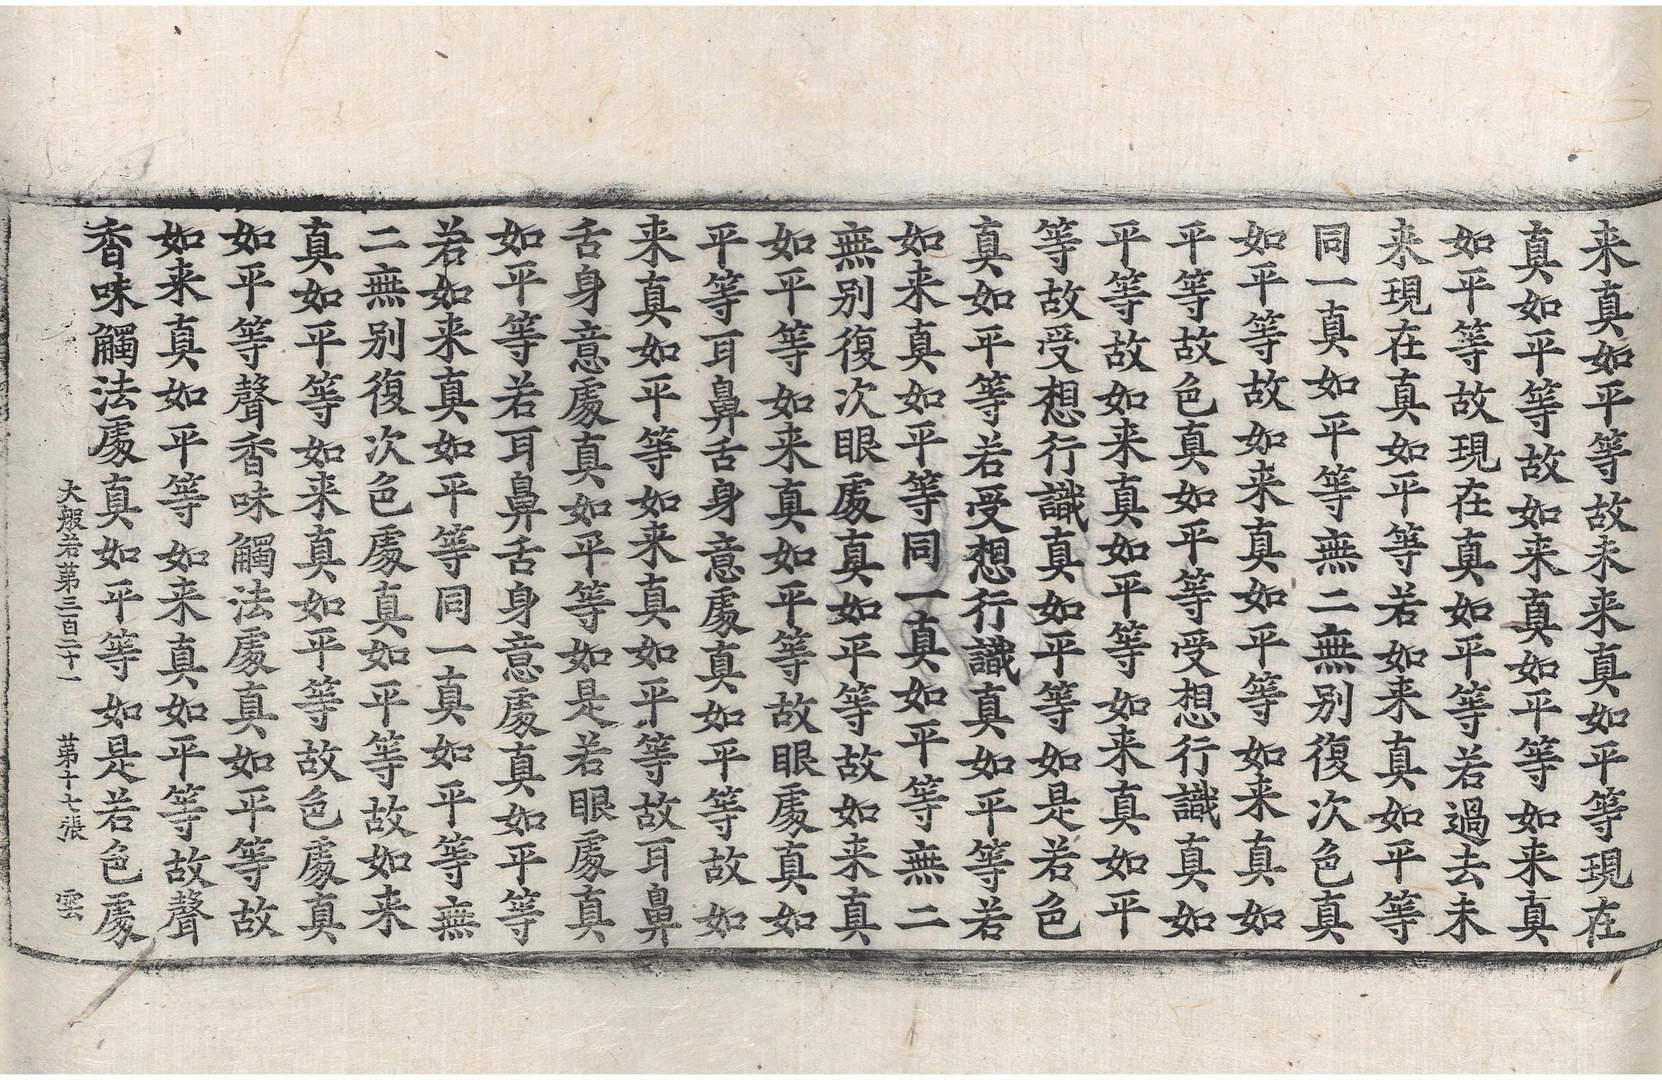 来真如平等故未来真如平等現在
真如平等故如来真如平等如来真
如平等故現在真如平等若過去未
来現在真如平等若如来真如平等
同一真如平等無二無别復次色真
如平等故如来真如平等如来真如
平等故色真如平等受想行識真如
平等故如来真如平等如来真如平
等故受想行識真如平等如是若色
真如平等若受想行識真如平等若
如来真如平等同一真如平等無二
無别復次眼處真如平等故如来真
如平等如来真如平等故眼處真如
平等耳鼻舌身意處真如平等故如
来真如平等如来真如平等故耳鼻
舌身意處真如平等如是若眼處真
如平等若耳鼻舌身意處真如平等
若如来真如平等同一真如平等無
二無别復次色處真如平等故如来
真如平等如来真如平等故色處真
如平等聲香味觸法處真如平等故
如来真如平等如来真如平等故聲
香味觸法處真如平等如是若色處
大般若第三百二十一 第十七張 雲